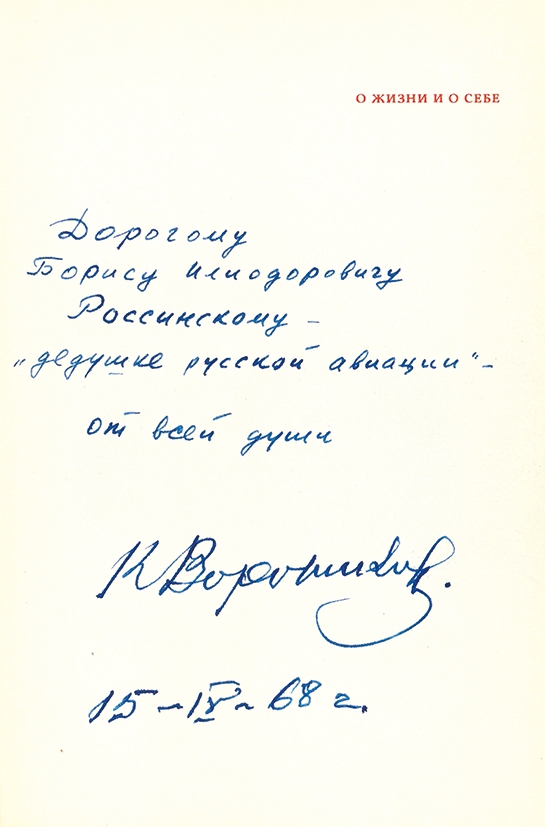 О ЖИЗНИ И О СЕБЕ
Дорогому
Борису Илиодоровичу
Россинскому –
„дедушке русской авиации“ –
от всей души
К Ворошилов.
15 – IV – 68 г.